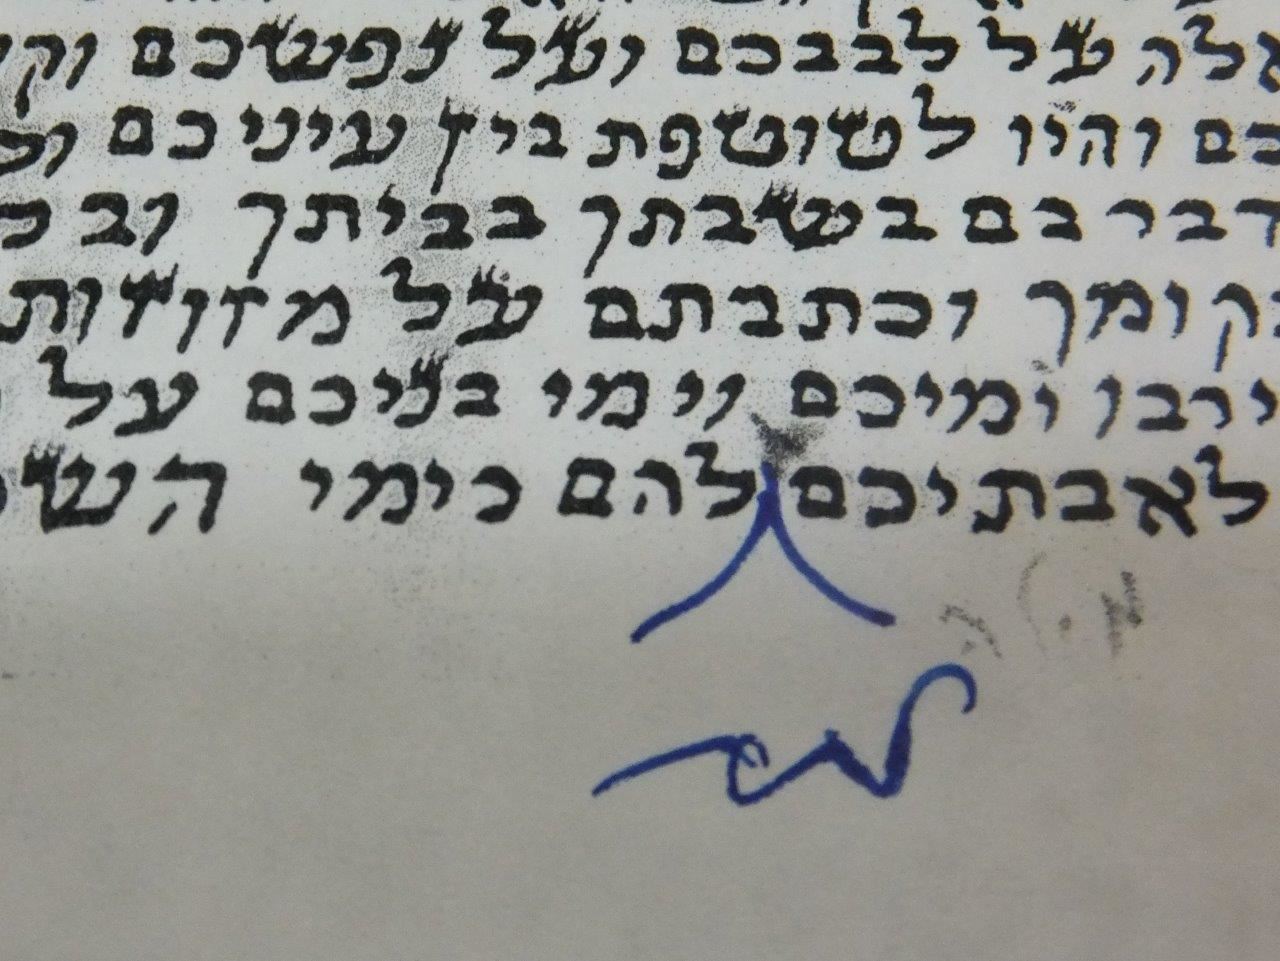 אלה על לבבכם ועל נפשכם וק
כם והיו לטוטפת בין עיניכם
דבר בם בשבתך בביתך וב כ
קומך וכתבתם על מזוזות
ירבו ימיכם וימי בניכם על
לאבתיכם להם כימי הש